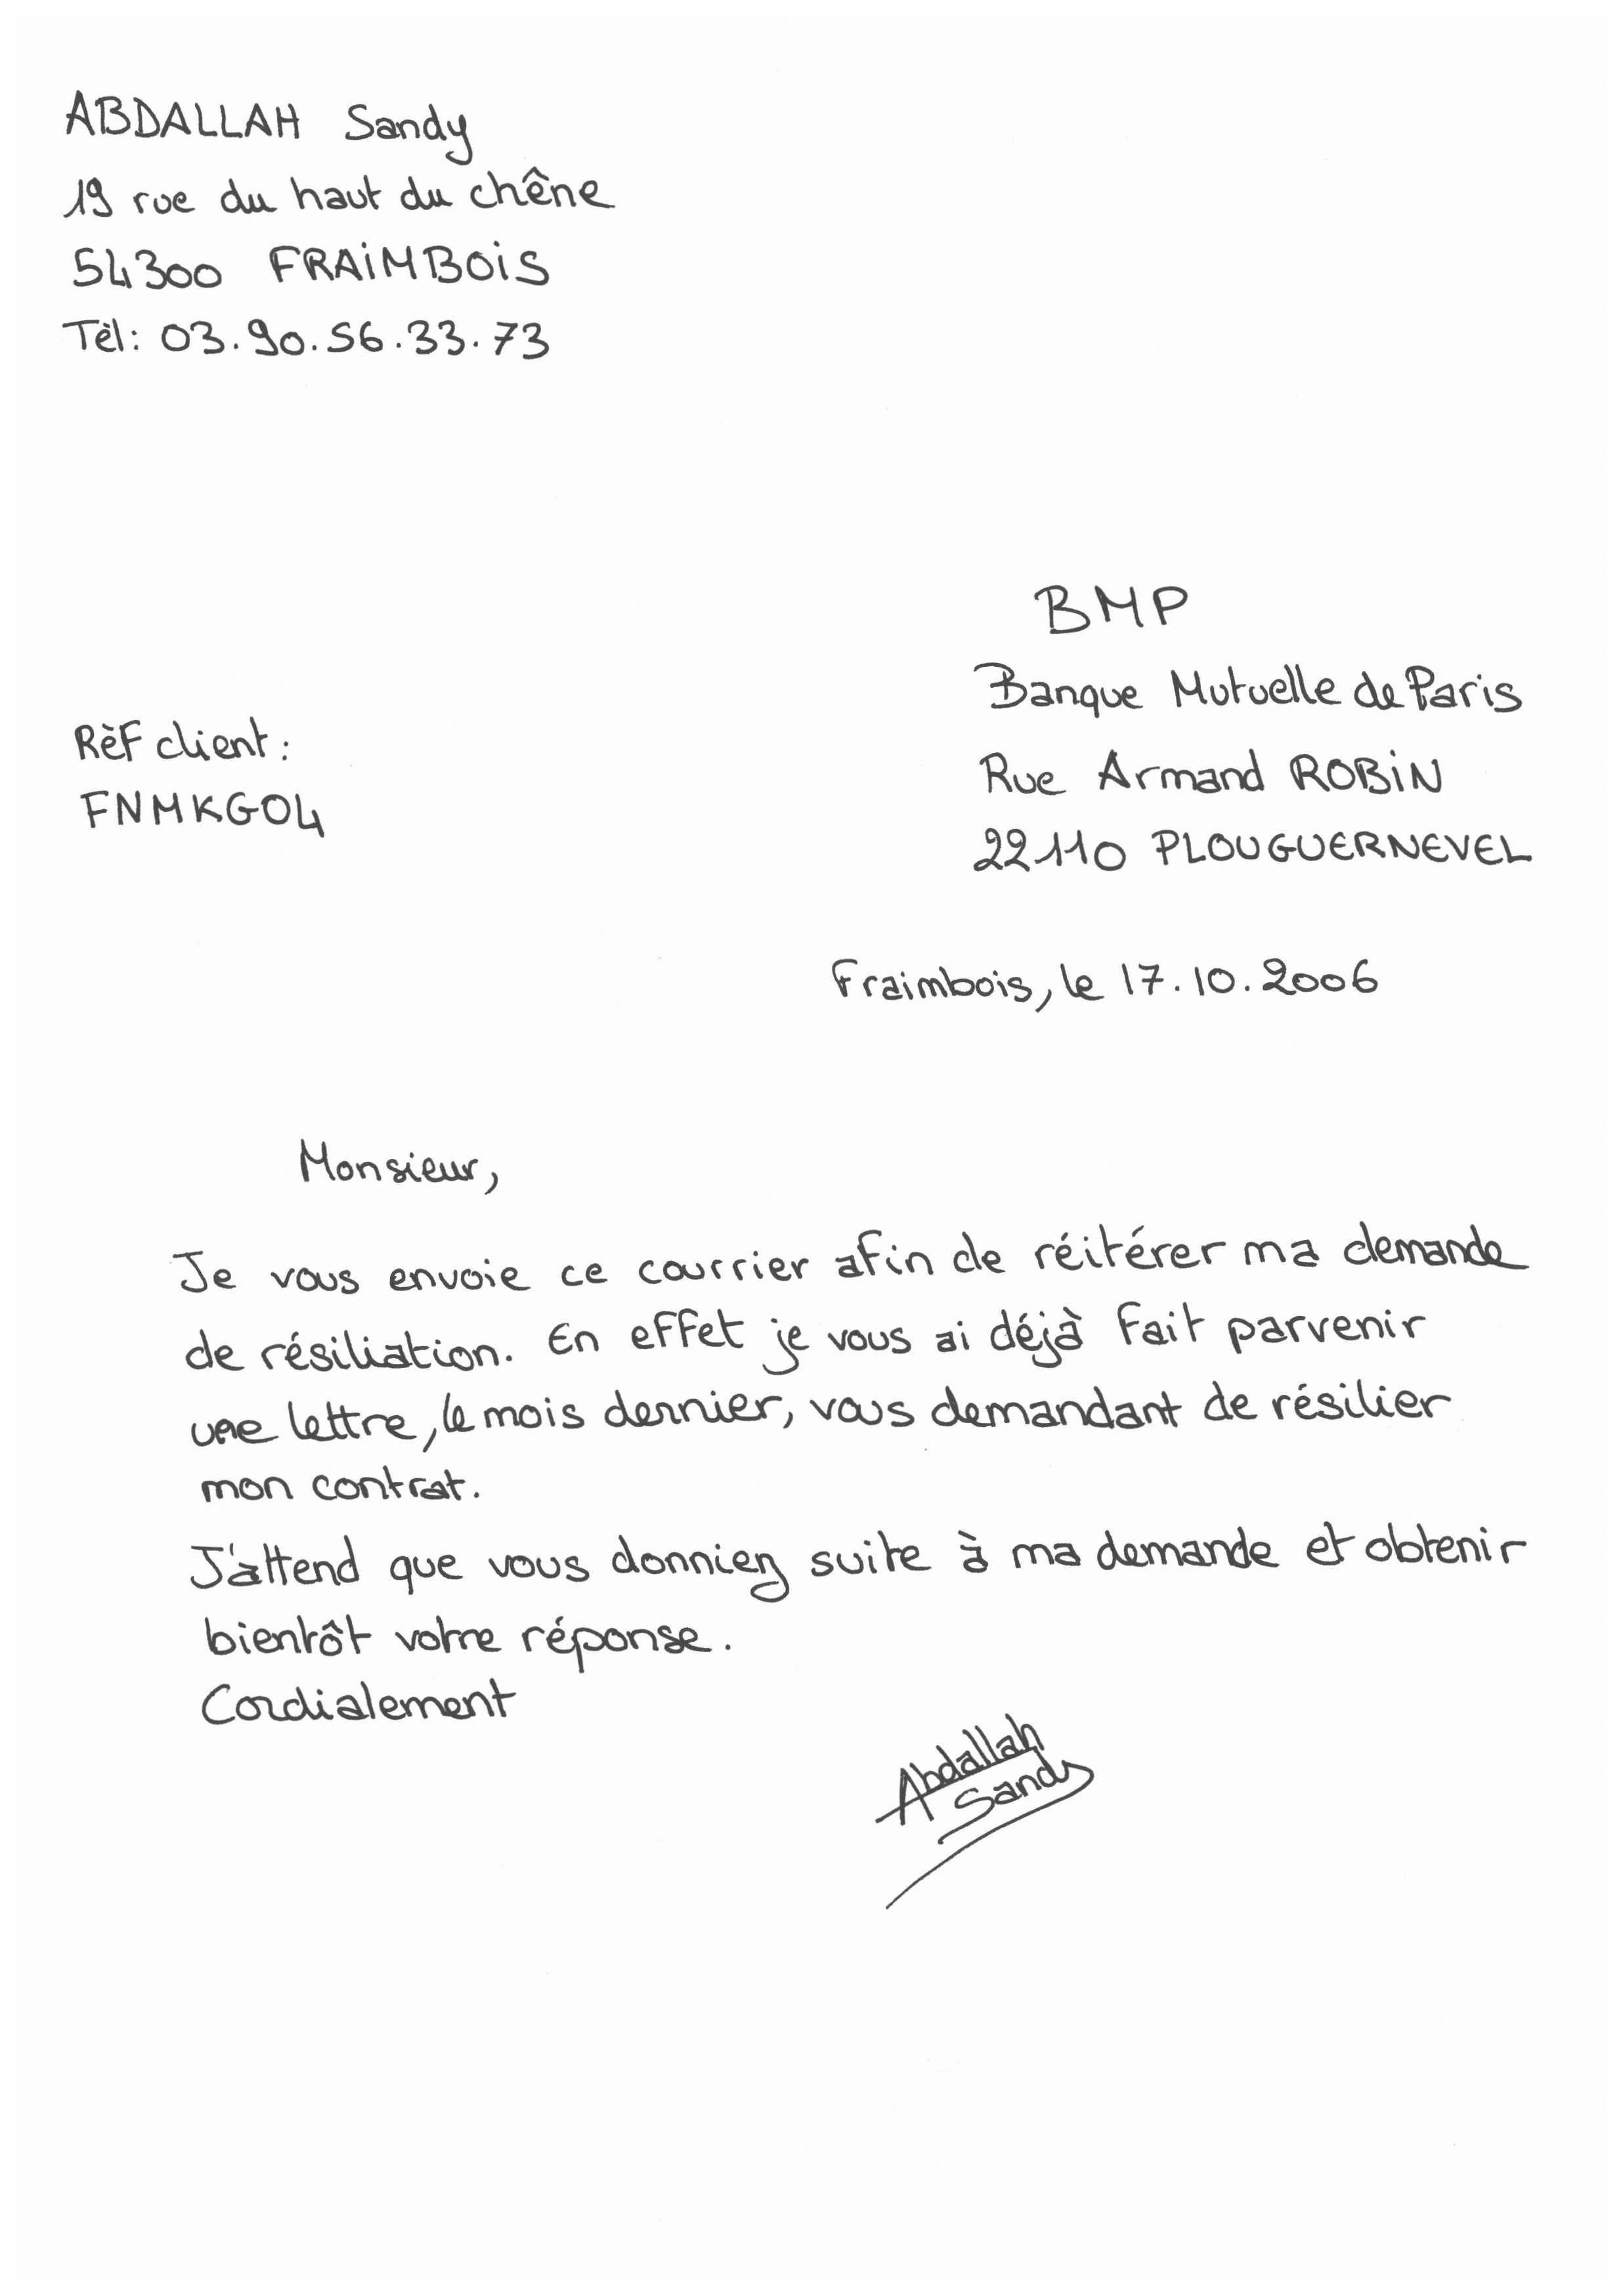 ABDALLAH Sandy
19 rue du haut du chêne
54300 FRAIMBOIS
Tèl: 03.90.56.33.73
BMP
Banque Mutuelle de Paris
Rèf client :
Rue Armand ROBIN
FNMKGO4
22110 PLOUGUERNEVEL
Fraimbois, le 17.10.2006
Monsieur,
Je vous envoie ce courrier afin de réitérer ma demande
de résiliation. En effet je vous ai déjà fait parvenir
une lettre, le mois dernier, vous demandant de résilier
mon contrat.
J'attend que vous donniez suite à ma demande et obtenir
bientôt votre réponse.
Cordialement
Abdallah
Sandy